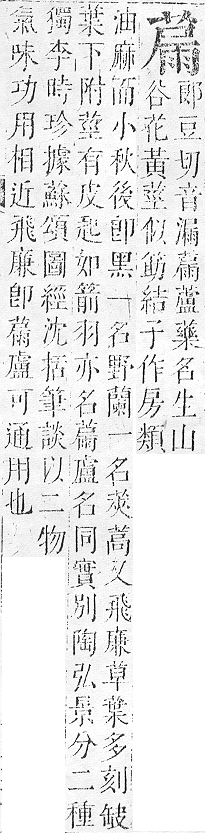 蔏郎豆切音漏蔏蘆藥名生山
谷花黃莖似筯結子作房類
油麻而小秋後卽黑一名野蘭一名莢蒿又飛廉草葉多刻缺
葉下附莖有皮起如箭羽亦名蔏蘆名同實別陶弘景分二種
獨李時珍據蘇頌圖經沈括筆談以二物
氣味功用相近飛廉卽蔏盧可通用也